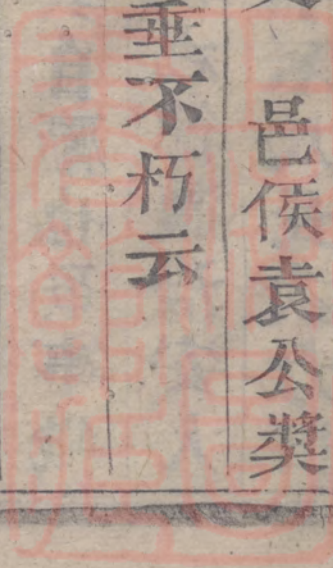 邑侯袁公奬
垂不朽云